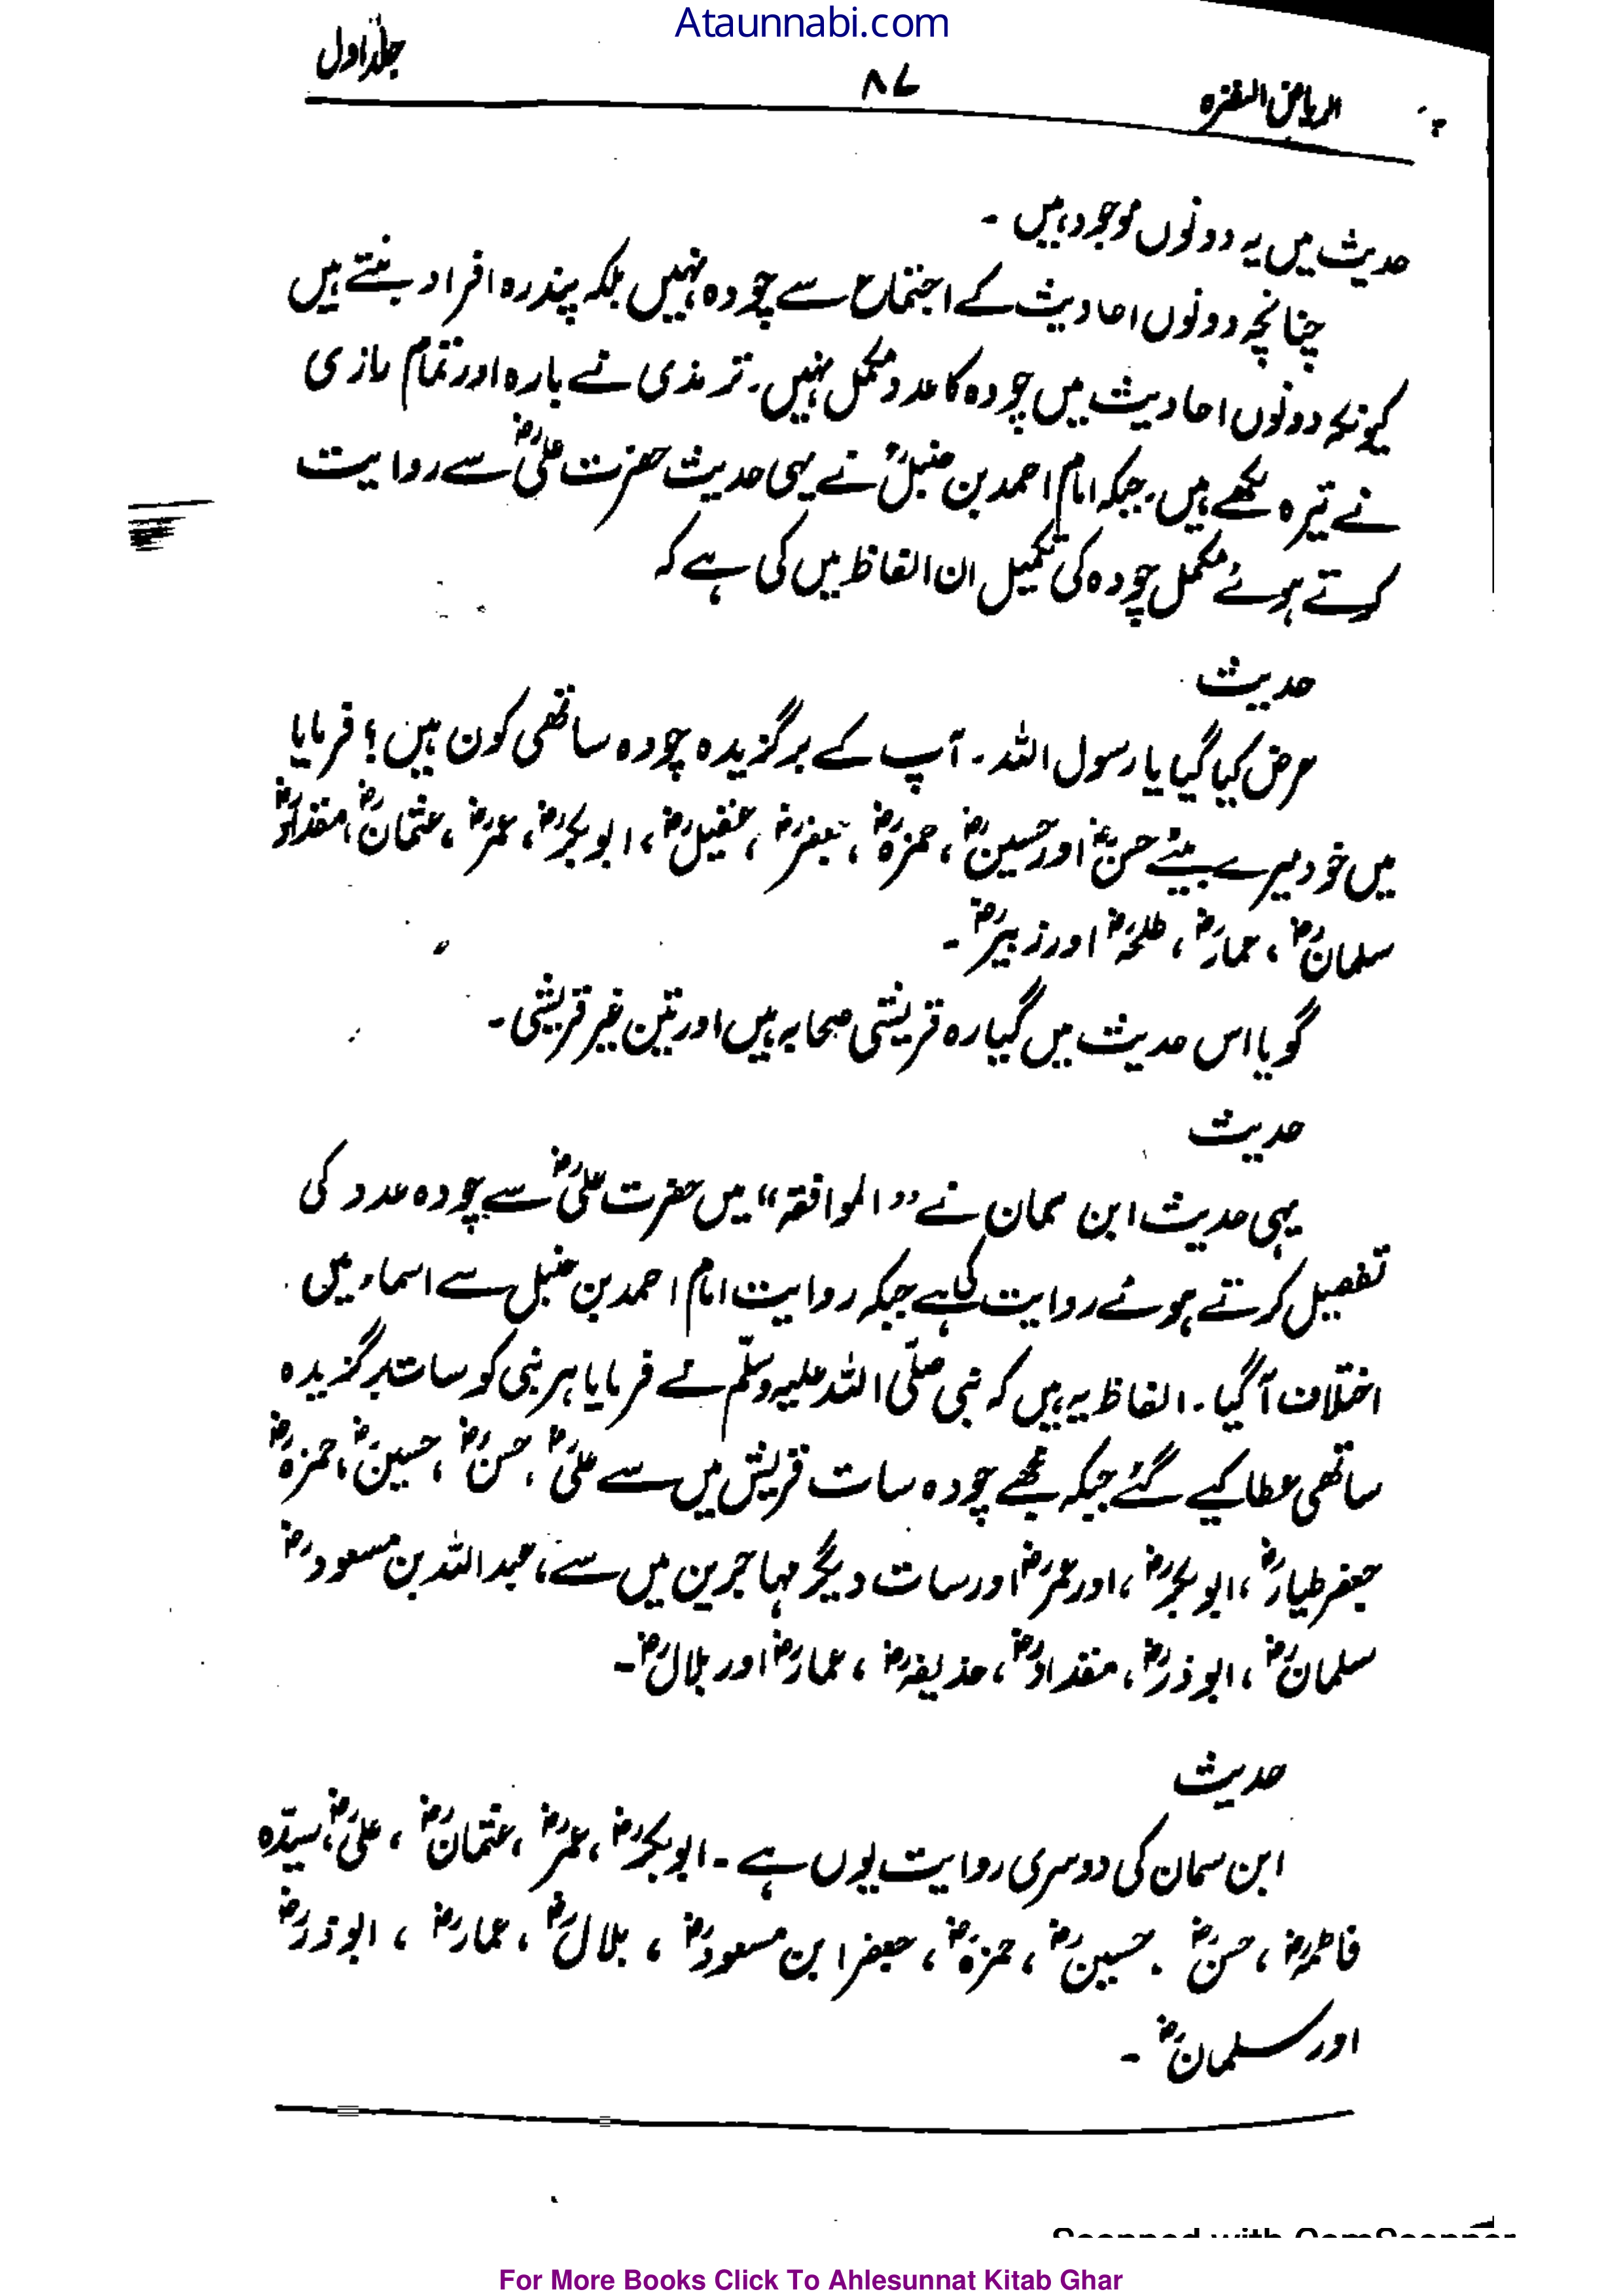 Ataunnabi.com
الریاض النضرہ ۸۷ جلد اول
حدیث میں یہ دونوں موجود ہیں ۔
چنانچہ دونوں احادیث کے اجتماع سے چودہ نہیں بلکہ پندرہ افراد بنتے ہیں
کیونکہ دونوں احادیث میں چودہ کا عدد مکمل نہیں۔ ترمذی نے بارہ اور تمام رازی
نے تیرہ لکھے ہیں۔ جبکہ امام احمد بن حنبلؒ نے یہی حدیث حضرت علیؓ سے روایت
کرتے ہوئے مکمل چودہ کی تکمیل ان الفاظ میں کی ہے کہ
حدیث
عرض کیا گیا یا رسول اللہ ۔ آپ کے برگزیدہ چودہ ساتھی کون ہیں؟ فرمایا
میں خود میرے بیٹے حسنؓ اور حسینؓ، حمزہؓ، جعفرؓ، عقیلؓ، ابوبکرؓ، عمرؓ، عثمانؓ، مقدادؓ
سلمانؓ، عمارؓ، طلحہؓ اور زبیرؓ ۔
گویا اس حدیث میں گیارہ قریشی صحابہ ہیں اور تین غیر قریشی ۔
حدیث
یہی حدیث ابن سمان نے ”الموافقہ“ میں حضرت علیؓ سے چودہ عدد کی
تفصیل کرتے ہوئے روایت کی ہے جبکہ روایت امام احمد بن حنبل سے اسماء میں
اختلاف آگیا ۔ الفاظ یہ ہیں کہ نبی صلّی اللہ علیہ وسلّم نے فرمایا ہر نبی کو سات برگزیدہ
ساتھی عطا کیے گئے جبکہ مجھے چودہ سات قریش میں سے علیؓ، حسنؓ، حسینؓ، حمزہؓ
جعفر طیارؓ، ابوبکرؓ، اور عمرؓ اور سات دیگر مہاجرین میں سے، عبداللہ بن مسعودؓ
سلمانؓ، ابوذرؓ، مقدادؓ، حذیفہؓ، عمارؓ اور بلالؓ ۔
حدیث
ابن سمان کی دوسری روایت یوں ہے ۔ ابوبکرؓ، عمرؓ، عثمانؓ، علیؓ، سیدّہ
فاطمہؓ، حسنؓ ۔ حسینؓ، حمزہؓ، جعفر ابن مسعودؓ، بلالؓ، عمارؓ، ابوذرؓ
اور سلمانؓ ۔
Scanned with CamScanner
For More Books Click To Ahlesunnat Kitab Ghar